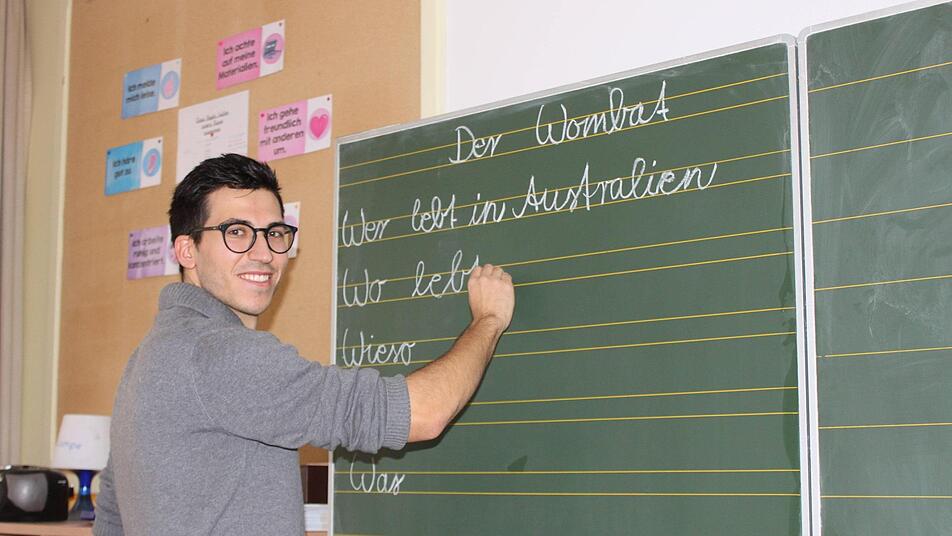 Der Wombat
Wer lebt in Australien
Wo lebt
Wieso
Was
Ich achte
auf meine
Materialien.
Ich melde
mich leise.
Ich gehe
freundlich
mit anderen
um.
Ich höre
gut zu.
Ich arbeite
ruhig und
konzentriert.